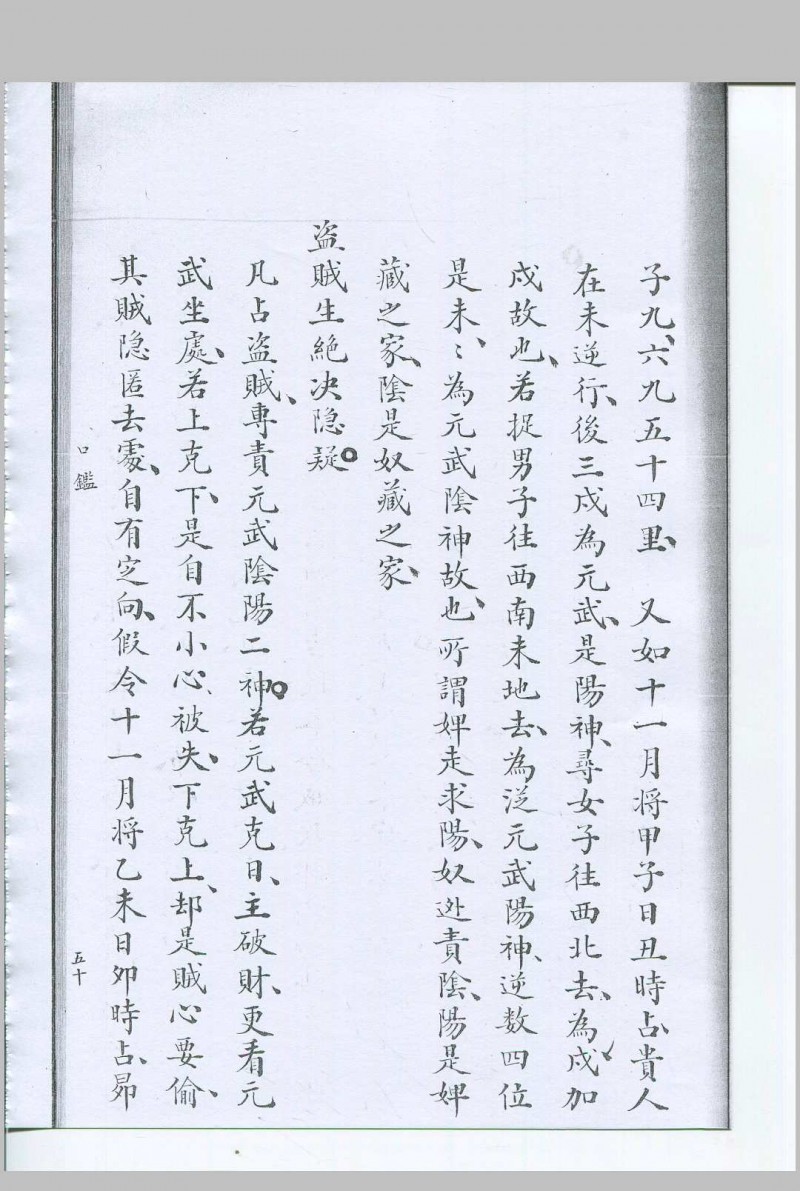 子九、六九五十四里、　又如十一月将甲子日丑時占、貴人
在未逆行、後三戍為元武、是陽神、尋女子往西北去、為戍加
戍故也、若捉男子往西南未地去、為从元武陽神、逆数四位
是未、〻為元武陰神故也、所謂婢走求陽、奴逃責陰、陽是婢
藏之家、陰是奴藏之家、
盗賊生絕决隐疑。
凡占盗賊、專責元武陰陽二神。若元武克日、主破財、更看元
武坐處、若上克下、是自不小心、被失、下克上、却是賊心要偷、
其賊隐匿去處、自有定向、假令十一月将乙未日卯時占、昴
口鑑
五十